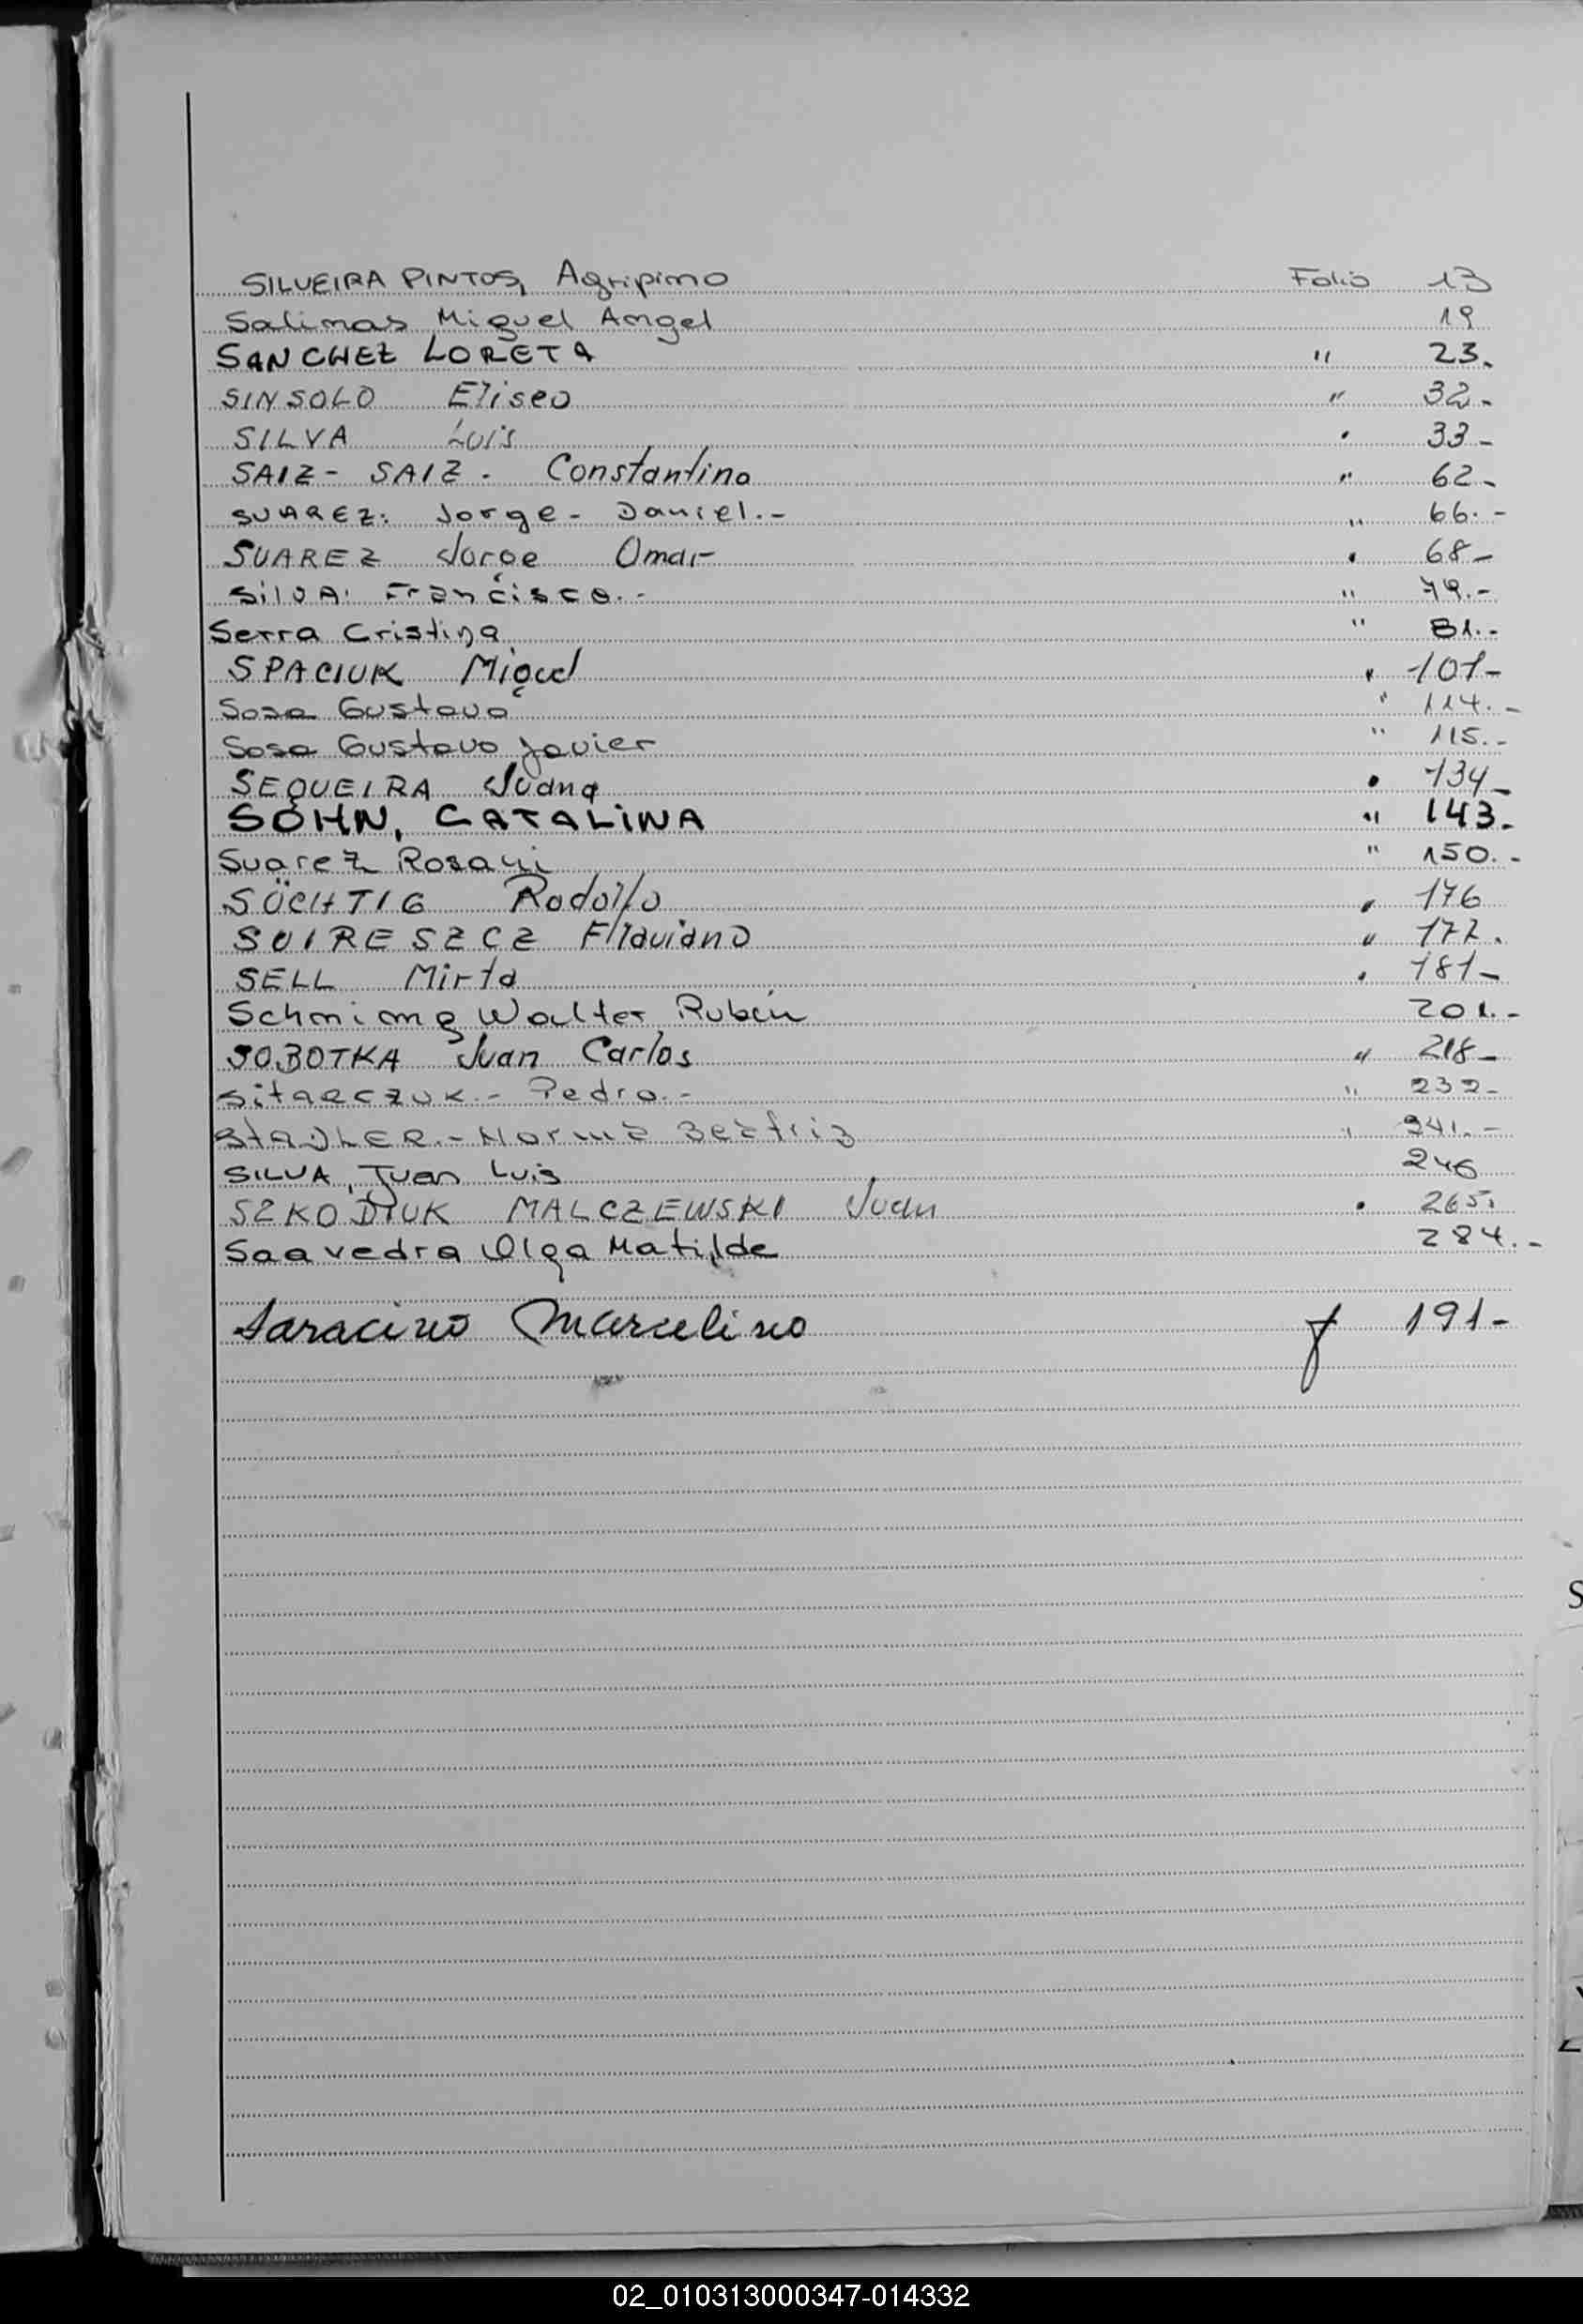 SILVEIRA PINTOS, Agripino Folio 13
Salinas Miguel Angel 19
SANCHEZ LORETA " 23.
SINSOLO Eliseo " 32.-
SILVA Luis " 33-
SAIZ - SAIZ - Constantino " 62-
SUAREZ: Jorge - Daniel.- " 66.-
SUAREZ Jorge Omar " 68-
SILVA: Francisco.- " 79.-
Serra Cristina " 81.-
SPACIUK Miguel " 101-
Sosa Gustavo " 114.-
Sosa Gustavo Javier " 115.-
SEQUEIRA Juana " 134-
SOHN, CATALINA " 143.
Suarez Rosani " 150.-
SÖCHTIG Rodolfo " 176
SUIRESZCZ Flaviano " 177.
SELL Mirta " 181-
Walter Rubén 201.-
SOBOTKA Juan Carlos " 218-
Sitarczuk.- Pedro.- " 232-
STADLER.- Norma Beatriz " 241.-
SILVA, Juan Luis 246
SZKODIUK MALCZEWSKI Juan " 265.
Saavedra Olga Matilde 284.-
Saracino Marcelino f 191-
S
02_010313000347-014332